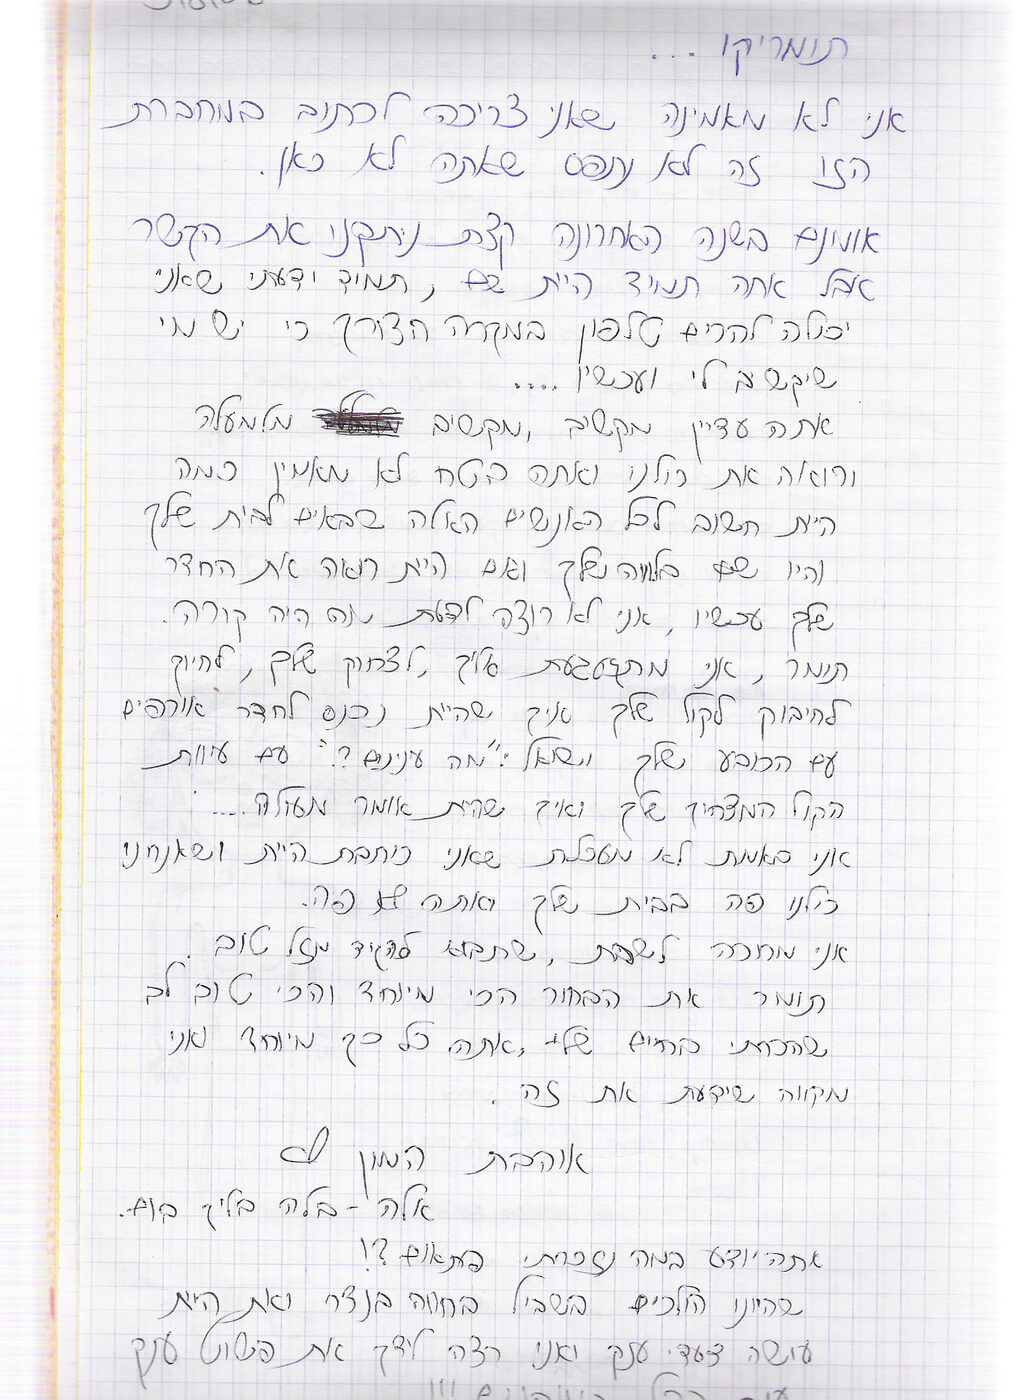 תומריקו ...
אני לא מאמינה שאני צריכה לכתוב במחברת
הזו זה לא נתפס שאתה לא כאן.
אומנם בשנה האחרונה קצת ניתקנו את הקשר
אבל אתה תמיד היית שם , תמיד ידעתי שאני
יכולה להרים טלפון במקרה הצורך כי יש מי
שיקשיב לי ועכשיו ....
אתה עדיין מקשיב ,מקשיב מלמעלה
ורואה את כולנו ואתה בטח לא מאמין כמה
היית חשוב לכל האנשים האלה שבאים לבית שלך
והיו שם בלוויה שלך ואם היית רואה את החדר
שלך עכשיו , אני לא רוצה לדעת מה היה קורה.
תומר , אני מתגעגעת אליך ,לצחוק שלך , לחיוך
לחיבוק לקול שלך איך שהיית נכנס לחדר אורפים
עם הכובע שלך ושואל :"מה ענינים ?" עם עיוות
הקול המצחיק שלך ואיך שהית אומר מעולה....
אני באמת לא מעכלת שאני כותבת היית ושאנחנו
כולנו פה בבית שלך ואתה לא פה.
אני מחכה לשבת , שתבוא להגיד מזל טוב .
תומר את הבחור הכי מיוחד והכי טוב לב
שהכרתי בחיים שלי ,אתה כל כך מיוחד ואני
מקווה שידעת את זה .
אוהבת המון
אלה - בלה בליך בום.
אתה יודע במה נזכרתי פתאום ?!
שהיינו הולכים בשביל בחווה בנצר ואת היית
עושה צעדי ענק ואני רצה לידך את פשוט ענק